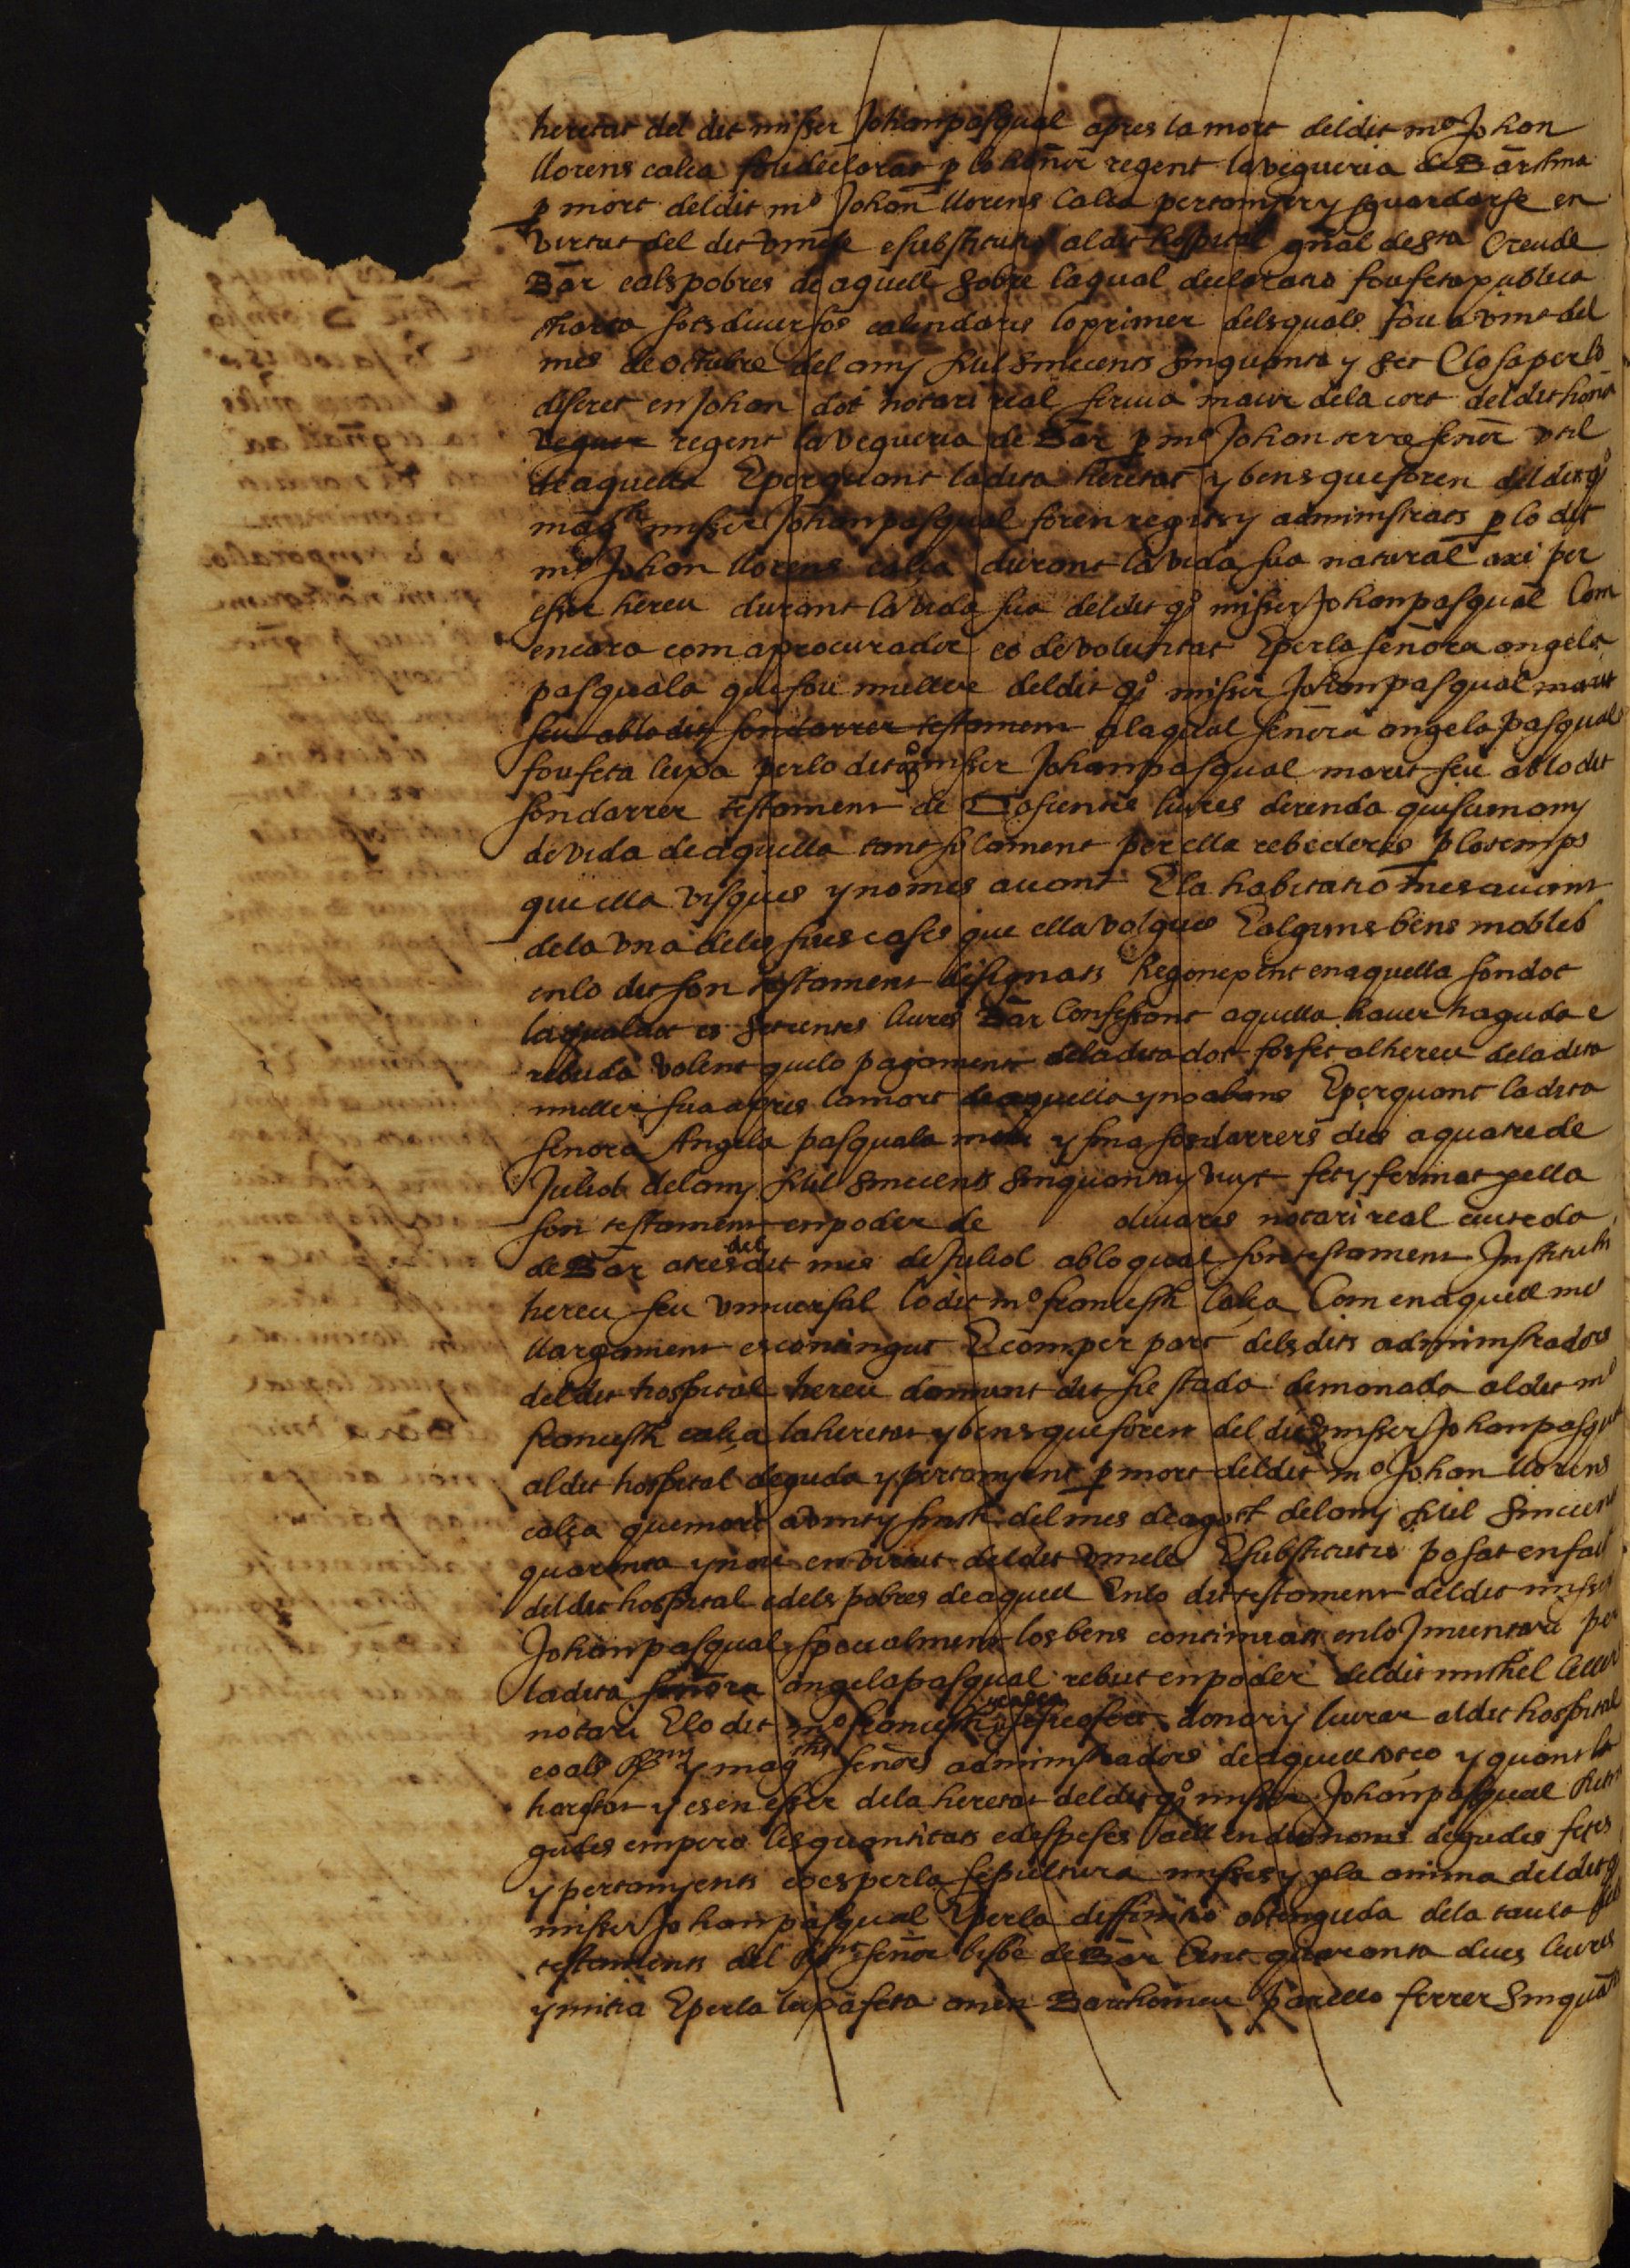 heretat del dit misser Johan pasqual apres la mort del dit mº Johan
llorens calça fou declarat p lo honor regent la vegueria de Barchna
p mort del dit mº Johan llorens calça pertanyer y sguardarse en
virtut del dit vincle e substitutio al dit hospital gnal de sta Creu de
Bar e als pobres de aquell sobre laqual declaratio fou feta publica
charta sots diversos calendaris lo primer dels quals fou a vint del
mes de octubre del any Mil sinccents sinquanta y set Closa per lo
discret en Johan dot notari real scriva maior dela cort del dit honor
veguer regent la vegueria de Bar p mº Johan serra señer util
de aquella E per quant la dita heretat y bens que foren del dit qº
magch misser Johan pasqual foren regits y administrats p lo dit
mº Johan llorens calça durant la vida sua natural axi per
esser hereu durant la vida sua del dit qº misser Johan pasqual Com
encara com a procurador eo de voluntat E per la señora angela
pasquala qui fou muller del dit qº misser Johan pasqual marit
seu ab lo dit son darrer testament ala qual señora angela pasquala
fou feta lexa per lo dit qº misser Johan pasqual marit seu ab lo dit
son darrer testament de Dosientes liures de renda quiscun any
de vida de aquella tant solament per ella rebedores p lo temps
que ella visques y no mes avant E la habitatio mes avant
de la una deles sues cases que ella volgues E alguns bens mobles
en lo dit son testament designats Regonexent en aquella son dot
la qual dot es setcentes liures Bar Confessant aquella haver haguda e
rebuda volent que lo pagament dela dita dot fos fet al hereu dela dita
muller sua apres la mort de aquella y no abans E per quant la dita
señora Angela pasquala y fina sos darrers dies a quatre de
Juliol del any Mil sinccents sinquanta y vuyt fet y fermat p ella
son testament en poder de olivares notari real ciuteda
de Bar a tres del dit mes de Juliol ab lo qual son testament Instituhi
hereu seu universal lo dit mº francesch calça Com en aquell mes
llargament es contingut E com per part dels dits administradors
del dit hospital hereu damunt dit sie stada demanada al dit mº
francesch calça la heretat y bens que foren del dit qº misser Johan pasqual
al dit hospital deguda y pertanyent p mort del dit mº Johan llorens
calça que mori a vint y sinch del mes de agost del any Mil Sinccents
quaranta y nou en virtut del dit vincle E substitutio posat en favor
del dit hospital e dels pobres de aquell En lo dit testament del dit misser
Johan pasqual specialment los bens continuats en lo Inventari per
la dita señora angela pasqual rebut en poder del dit michel celler
notari E lo dit mº francesch calça se sie ofert donar y liurar al dit hospital
eo als Rnts y magchs señors administradors de aquell tot ço y quant la
heretat y es en esser dela heretat del dit qº misser Johan pasqual Retin
gudes empero les quantitats e despeses a ell en dit nom degudes fetes
y pertanyents ço es per la sepultura misses y p la anima del dit qº
misser Johan pasqual E per la diffinitio obtenguda dela taula dels
testaments del Rnt señor bisbe de Bar Cent quaranta dues liures
y mitja E per la lexa feta a nen Barthomeu parello ferrer Sinquanta